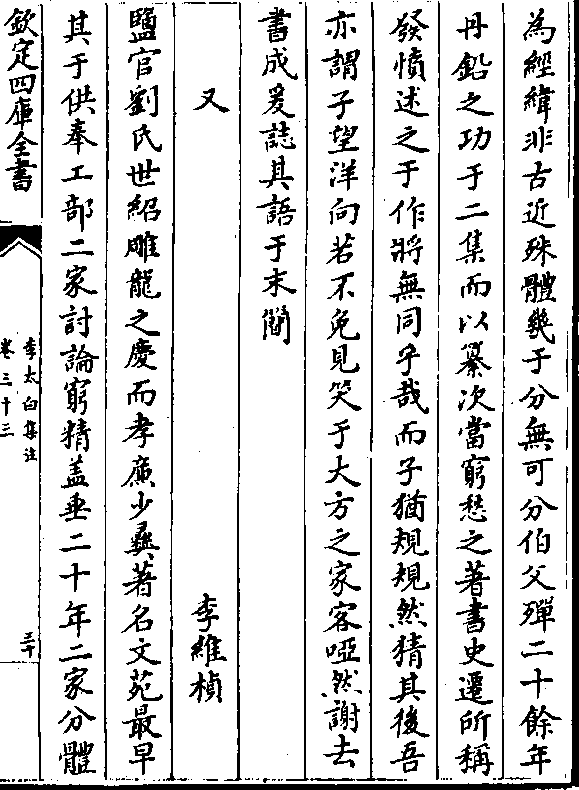 為經緯非古近殊體幾于分無可分伯父殫二十餘年
丹鉛之功于二集而以纂次當窮愁之著書史遷所稱
發憤述之于作將無同乎哉而子猶規規然猜其後吾
亦謂子望洋向若不免見笑于大方之家客啞然謝去
書成爰誌其語于末簡
又 李維楨
鹽官劉氏世紹雕龍之慶而孝廣少彝著名文苑最早
其于供奉工部二家討論窮精蓋垂二十年二家分體
欽定四庫全書
李太白集注
卷三十三
三十